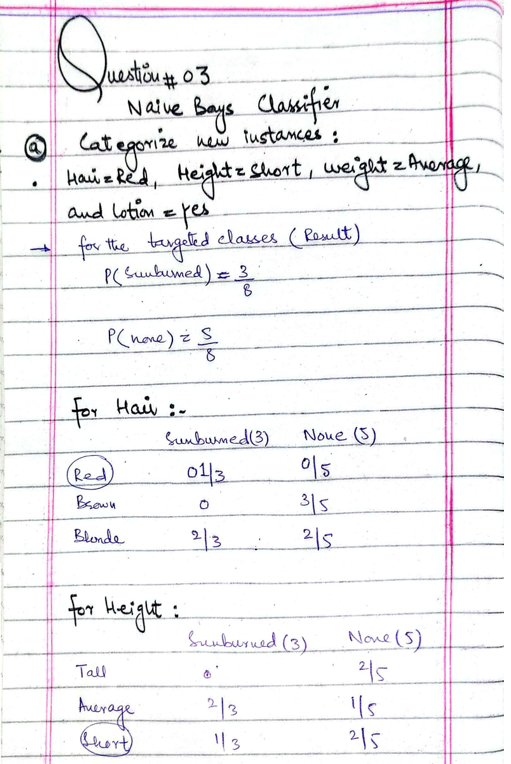 Question # 03
Naive Bays Classifier
(a) Categorize new instances :
• Hair = Red, Height = Short, weight = Average,
and Lotion = Yes
→ for the targeted classes (Result)
P(Sunburned) = 3/8
P(none) = 5/8
For Hair :-
Sunburned(3) None (5)
Red 01/3 0/5
Brown 0 3/5
Blonde 2/3 2/5
for Height :
Sunburned (3) None (5)
Tall 0 2/5
Average 2/3 1/5
Short 1/3 2/5